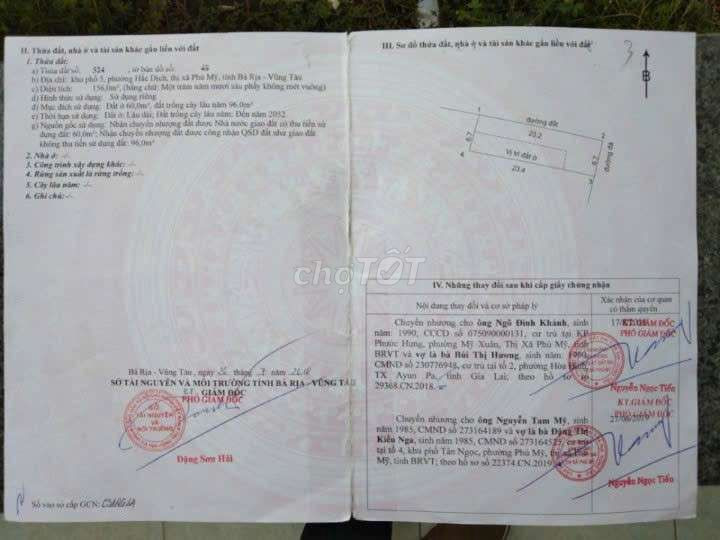 II. Thửa đất, nhà ở và tài sản khác gắn liền với đất
1. Thửa đất:
a) Thửa đất số: 524 tờ bản đồ số: 45
b) Địa chỉ: khu phố 5, phường Hắc Dịch, thị xã Phú Mỹ, tỉnh Bà Rịa - Vũng Tàu
c) Diện tích: 156,0m², (bằng chữ: Một trăm năm mươi sáu phẩy không mét vuông)
d) Hình thức sử dụng: Sử dụng riêng
đ) Mục đích sử dụng: Đất ở 60,0m², đất trồng cây lâu năm 96.0m²
e) Thời hạn sử dụng: Đất ở: Lâu dài; Đất trồng cây lâu năm: Đến năm 2052.
g) Nguồn gốc sử dụng: Nhận chuyển nhượng đất được Nhà nước giao đất có thu tiền sử
dụng đất: 60,0m²; Nhận chuyển nhượng đất được công nhận QSD đất như giao đất
không thu tiền sử dụng đất: 96,0m²
2. Nhà ở: -/-
3. Công trình xây dựng khác: -/-
4. Rừng sản xuất là rừng trồng: -/-
5. Cây lâu năm: -/-
6. Ghi chú: -/-
Bà Rịa - Vũng Tàu, ngày tháng năm
SỞ TÀI NGUYÊN VÀ MÔI TRƯỜNG TỈNH BÀ RỊA - VŨNG TÀU
KT. GIÁM ĐỐC
PHÓ GIÁM ĐỐC
SỞ
TÀI NGUYÊN
VÀ
MÔI TRƯỜNG
Đặng Sơn Hải
Số vào sổ cấp GCN:
III. Sơ đồ thửa đất, nhà ở và tài sản khác gắn liền với đất
3
B
đường đất
1
2
20.2
6.7
6.7
đường đá
Vị trí đất ở
4
23.4
3
chợTỐT
IV. Những thay đổi sau khi cấp giấy chứng nhận
Nội dung thay đổi và cơ sở pháp lý
Xác nhận của cơ quan
có thẩm quyền
Chuyển nhượng cho ông Ngô Đình Khánh, sinh
năm 1990, CCCD số 075090000131, cư trú tại KP
Phước Hưng, phường Mỹ Xuân, Thị Xã Phú Mỹ, tỉnh
BRVT và vợ là bà Bùi Thị Hương, sinh năm
CMND số 230776948, cư trú tại tổ 2, phường Hòa Bình,
TX Ayun Pa, tỉnh Gia Lai; theo hồ sơ số
29368.CN.2018.
KT.GIÁM ĐỐC
PHÓ GIÁM ĐỐC
Nguyễn Ngọc Tiến
Chuyển nhượng cho ông Nguyễn Tam Mỹ, sinh
năm 1985, CMND số 273164189 và vợ là bà Đặng Thị
Kiều Nga, sinh năm 1985, CMND số 273164525, cư trú
tại tổ 4, khu phố Tân Ngọc, phường Phú Mỹ, thị xã Phú
Mỹ, tỉnh BRVT; theo hồ sơ số 22374.CN.2019
KT.GIÁM ĐỐC
PHÓ GIÁM ĐỐC
Nguyễn Ngọc Tiến